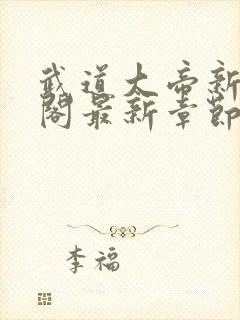 武道大帝新
阁最新章节
李福